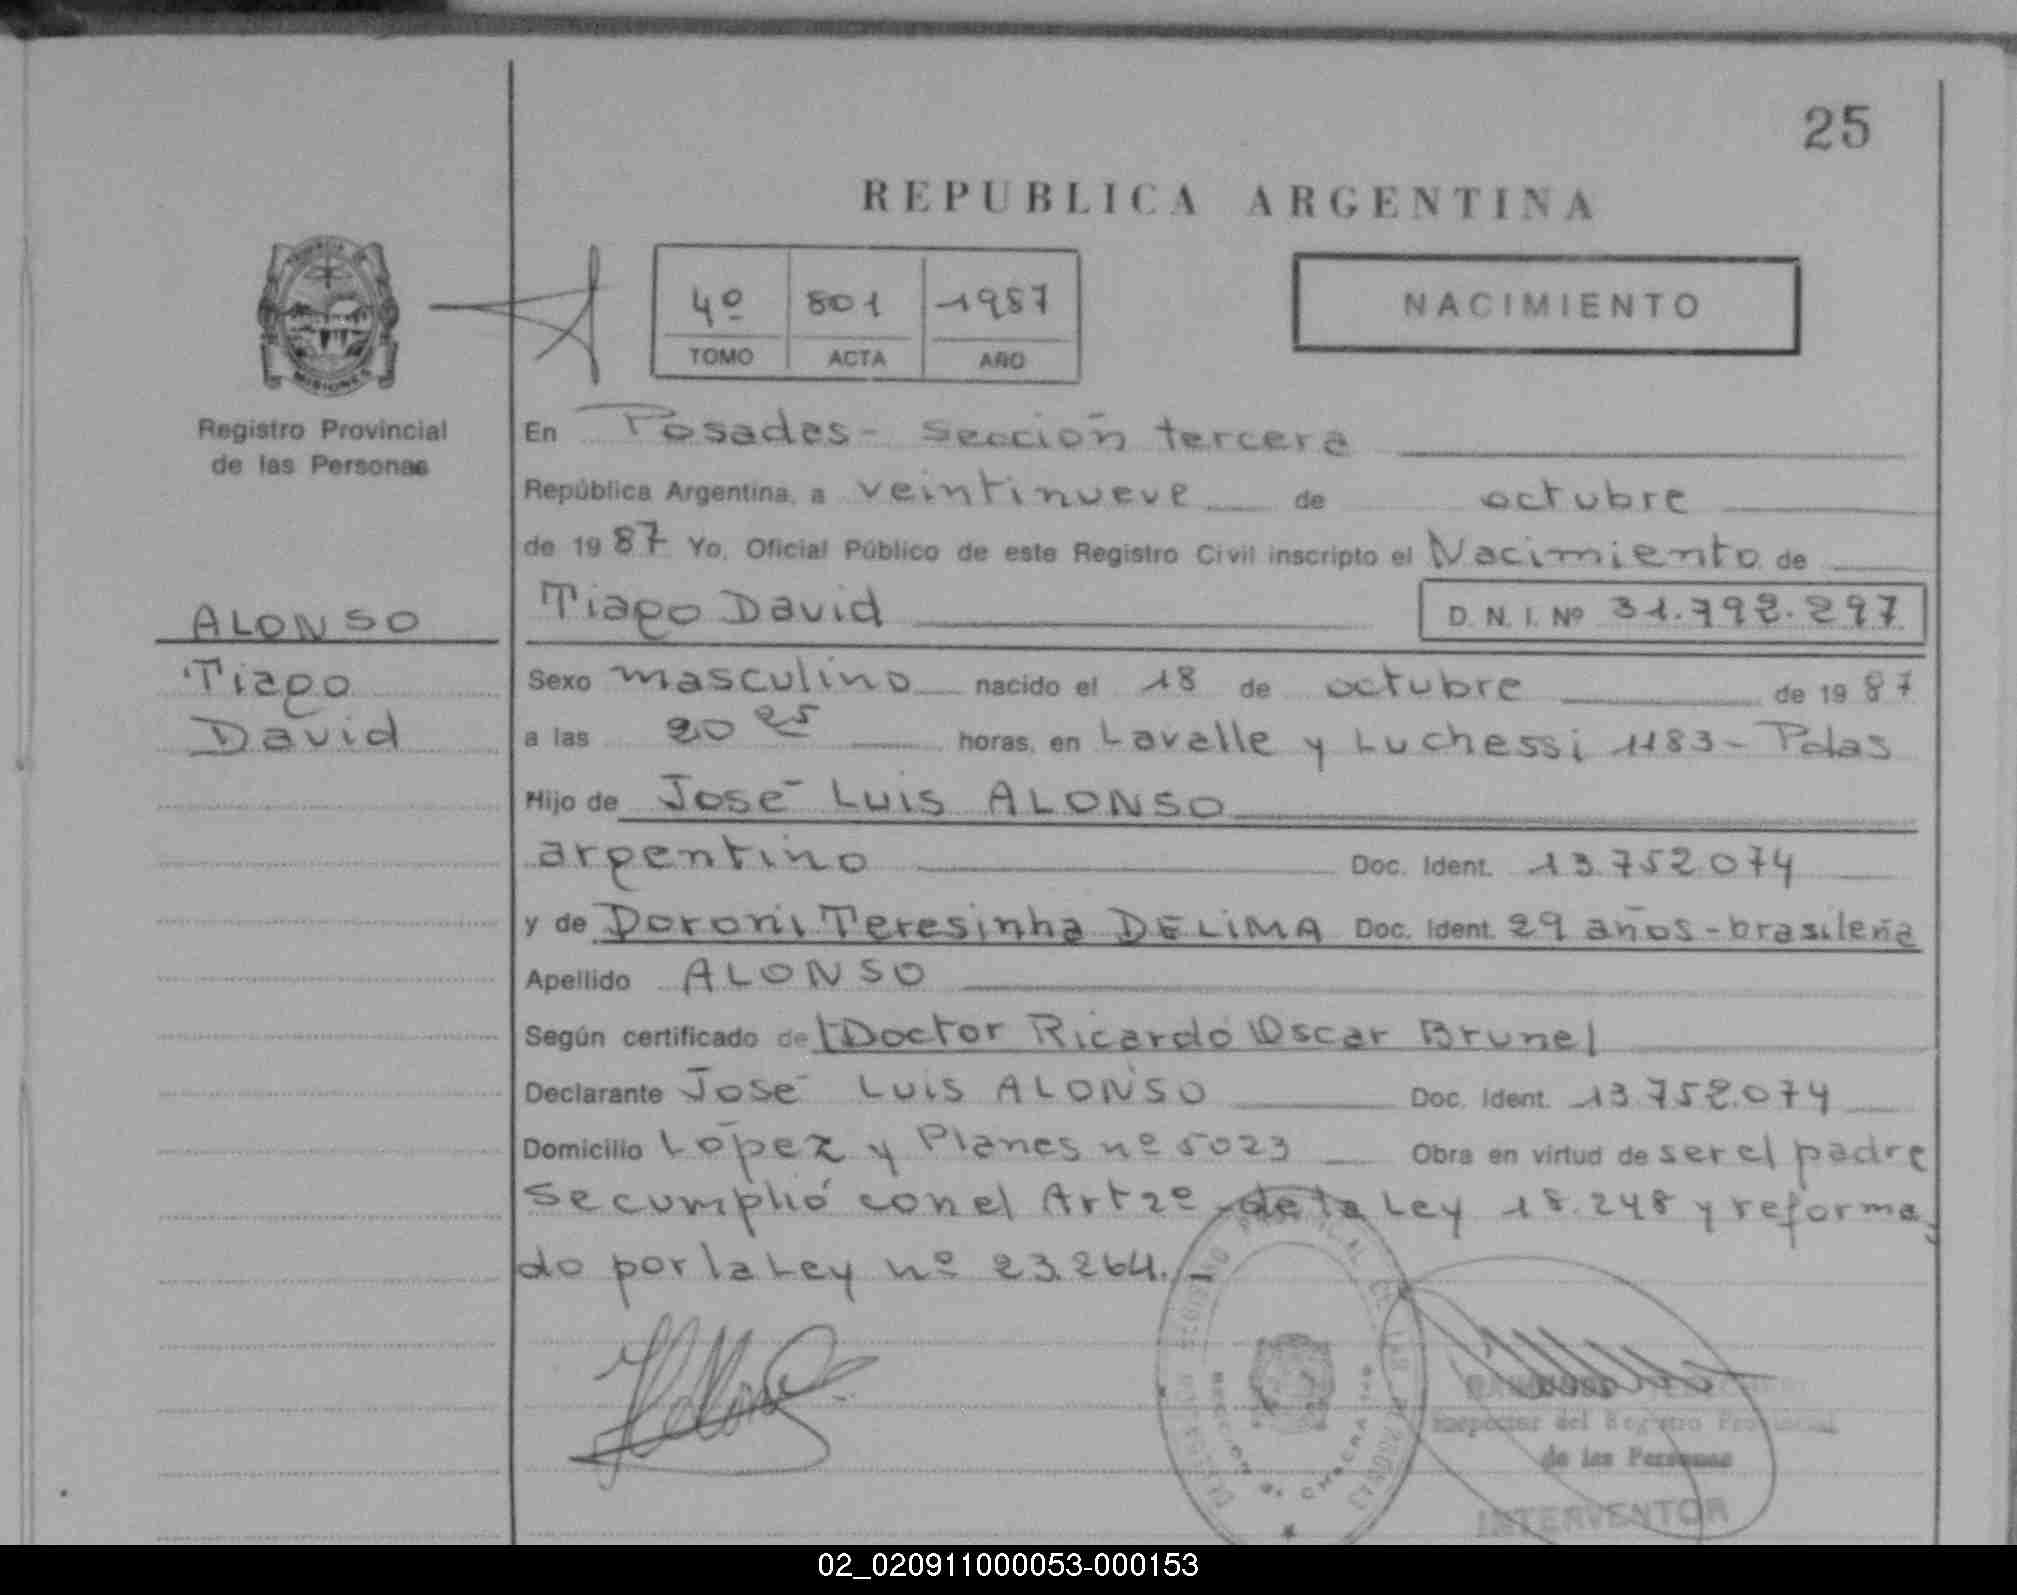 25
REPUBLICA ARGENTINA
4º 801 1987
TOMO ACTA AÑO
NACIMIENTO
MISIONES
Registro Provincial
de las Personas
En Posadas - Sección tercera
República Argentina, a veintinueve de octubre
de 1987 Yo, Oficial Público de este Registro Civil inscripto el Nacimiento de
ALONSO
Tiago David
D. N. I. Nº 31.792.297
Tiago
David
Sexo masculino nacido el 18 de octubre de 1987
a las 20 25 horas, en Lavalle y Luchessi 1183 - Pdas
Hijo de José Luis ALONSO
argentino Doc. Ident. 13.752.074
y de Doroni Teresinha DELIMA Doc. Ident. 29 años - brasileña
Apellido ALONSO
Según certificado del Doctor Ricardo Oscar Brunel
Declarante José Luis ALONSO Doc. Ident. 13.752.074
Domicilio López y Planes nº 5023 Obra en virtud de ser el padre
se cumplió con el Art 2º de la Ley 18.248 y reforma
do por la Ley nº 23.264.-
Inspector del Registro Provincial
de las Personas
INTERVENTOR
02_020911000053-000153